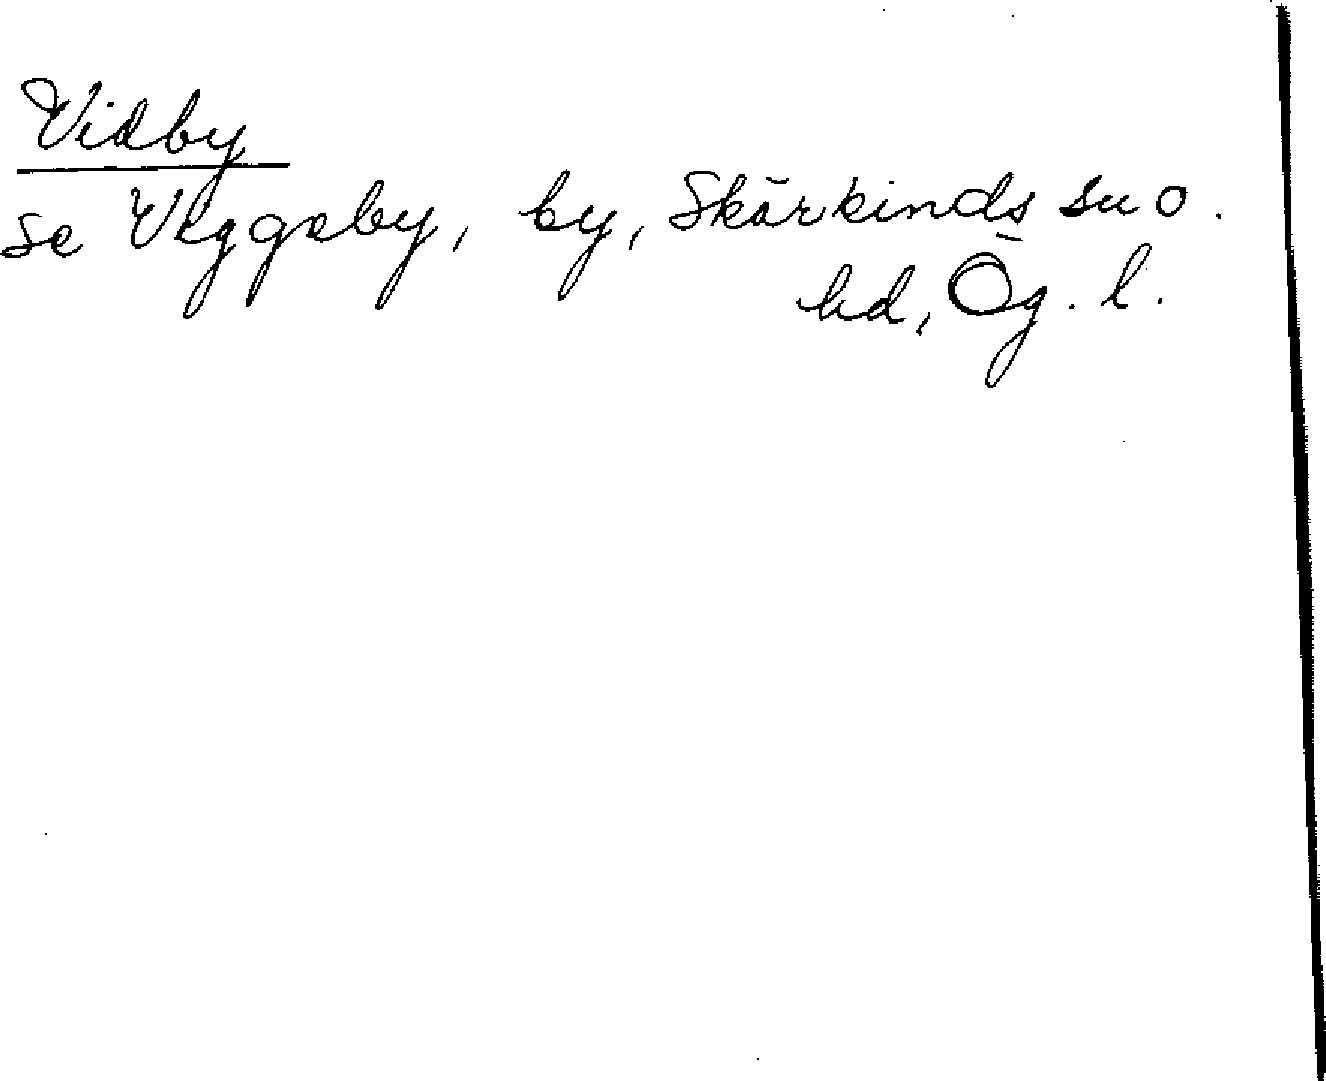 Vidby
se Veggeby, by, Skärkinds sn o.
hd, Ög. l.